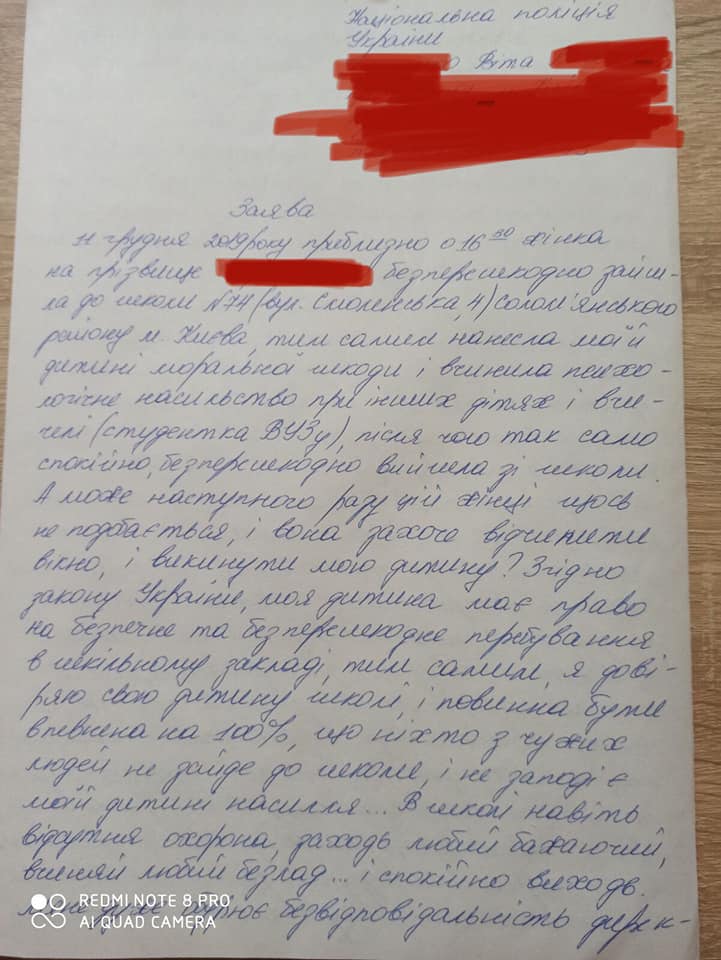 Національна поліція
України
о Віта
Заява
11 грудня 2019 року приблизно о 16 50 жінка
на прізвище безперешкодно зайш-
ла до школи №74 (вул. Смоленська, 4) Солом'янського
району м. Києва, тим самим нанесла моїй
дитині моральної шкоди і вчинила психо-
логічне насильство при інших дітях і вчи-
телі (студентка ВУЗу), після чого так само
спокійно, безперешкодно вийшла зі школи.
А може наступного разу цій жінці щось
не подобається, і вона захоче відчинити
вікно, і викинути мою дитину? Згідно
закону України, моя дитина має право
на безпечне та безперешкодне перебування
в шкільному закладі, тим самим, я дові-
ряю свою дитину школі, і повинна бути
впевнена на 100%, що ніхто з чужих
людей не зайде до школи, і не заподіє
моїй дитині насилля... В школі навіть
відсутня охорона, заходь любий бажаючий,
вчиняй любий безлад... і спокійно виходь.
безвідповідальність
REDMI NOTE 8 PRO
AI QUAD CAMERA